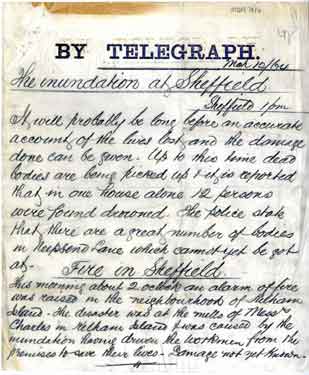 BY TELEGRAPH.
Mar 12/64
The inundation at Sheffield
Sheffield 1 pm
It will probably be long before an accurate
account of the lives lost and the damage
done can be given. Up to this time dead
bodies are being picked up & it is reported
that in one house alone 12 persons
were found drowned. The police state
that there are a great number of bodies
in Neepsend Lane which cannot yet be got
at.
Fire in Sheffield
This morning about 2 oclock an alarm of fire
was raised in the neighbourhood of Kelham
Island. The disaster was at the mills of Messrs
Charles in Kelham Island & was caused by the
inundation having driven the workmen from the
premises to save their lives - Damage not yet known.